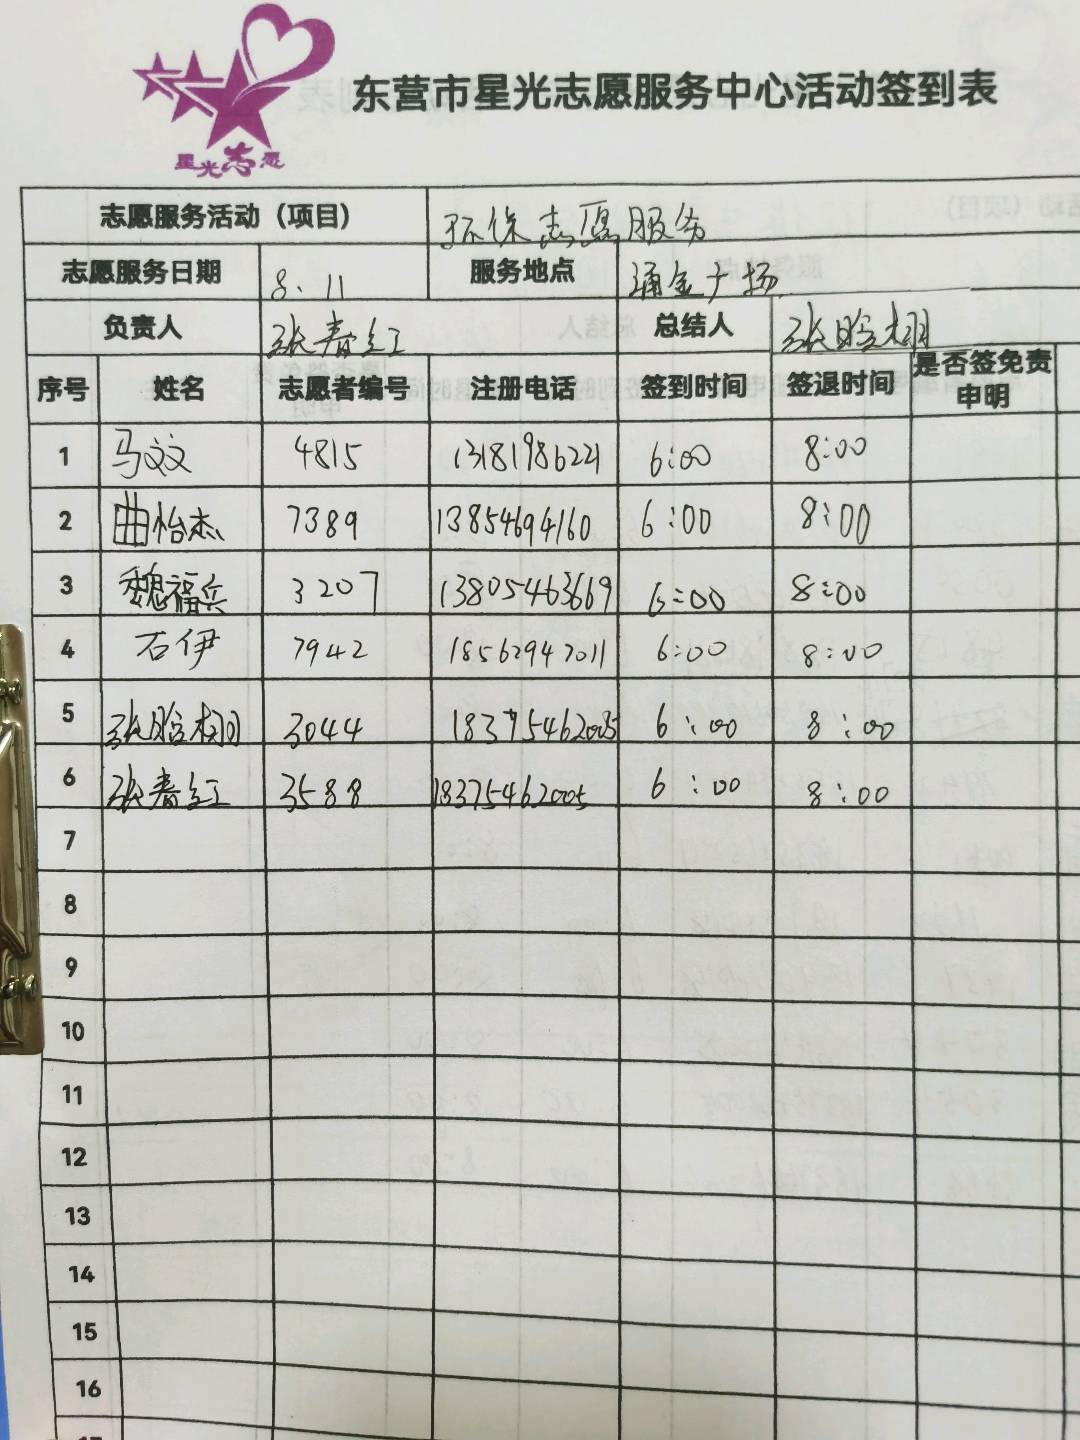 星光志愿
东营市星光志愿服务中心活动签到表
志愿服务活动（项目） 环保志愿服务
志愿服务日期 8.11 服务地点 涌金广场
负责人 张春红 总结人 张晗栩
序号 姓名 志愿者编号 注册电话 签到时间 签退时间 是否签免责申明
1 马文文 4815 13181986221 6:00 8:00
2 曲怡杰 7389 13854694160 6:00 8:00
3 魏福兵 3207 13805463669 6:00 8:00
4 石伊 7942 18562947011 6:00 8:00
5 张晗栩 3044 18375462005 6:00 8:00
6 张春红 3588 18375462005 6:00 8:00
7
8
9
10
11
12
13
14
15
16
17